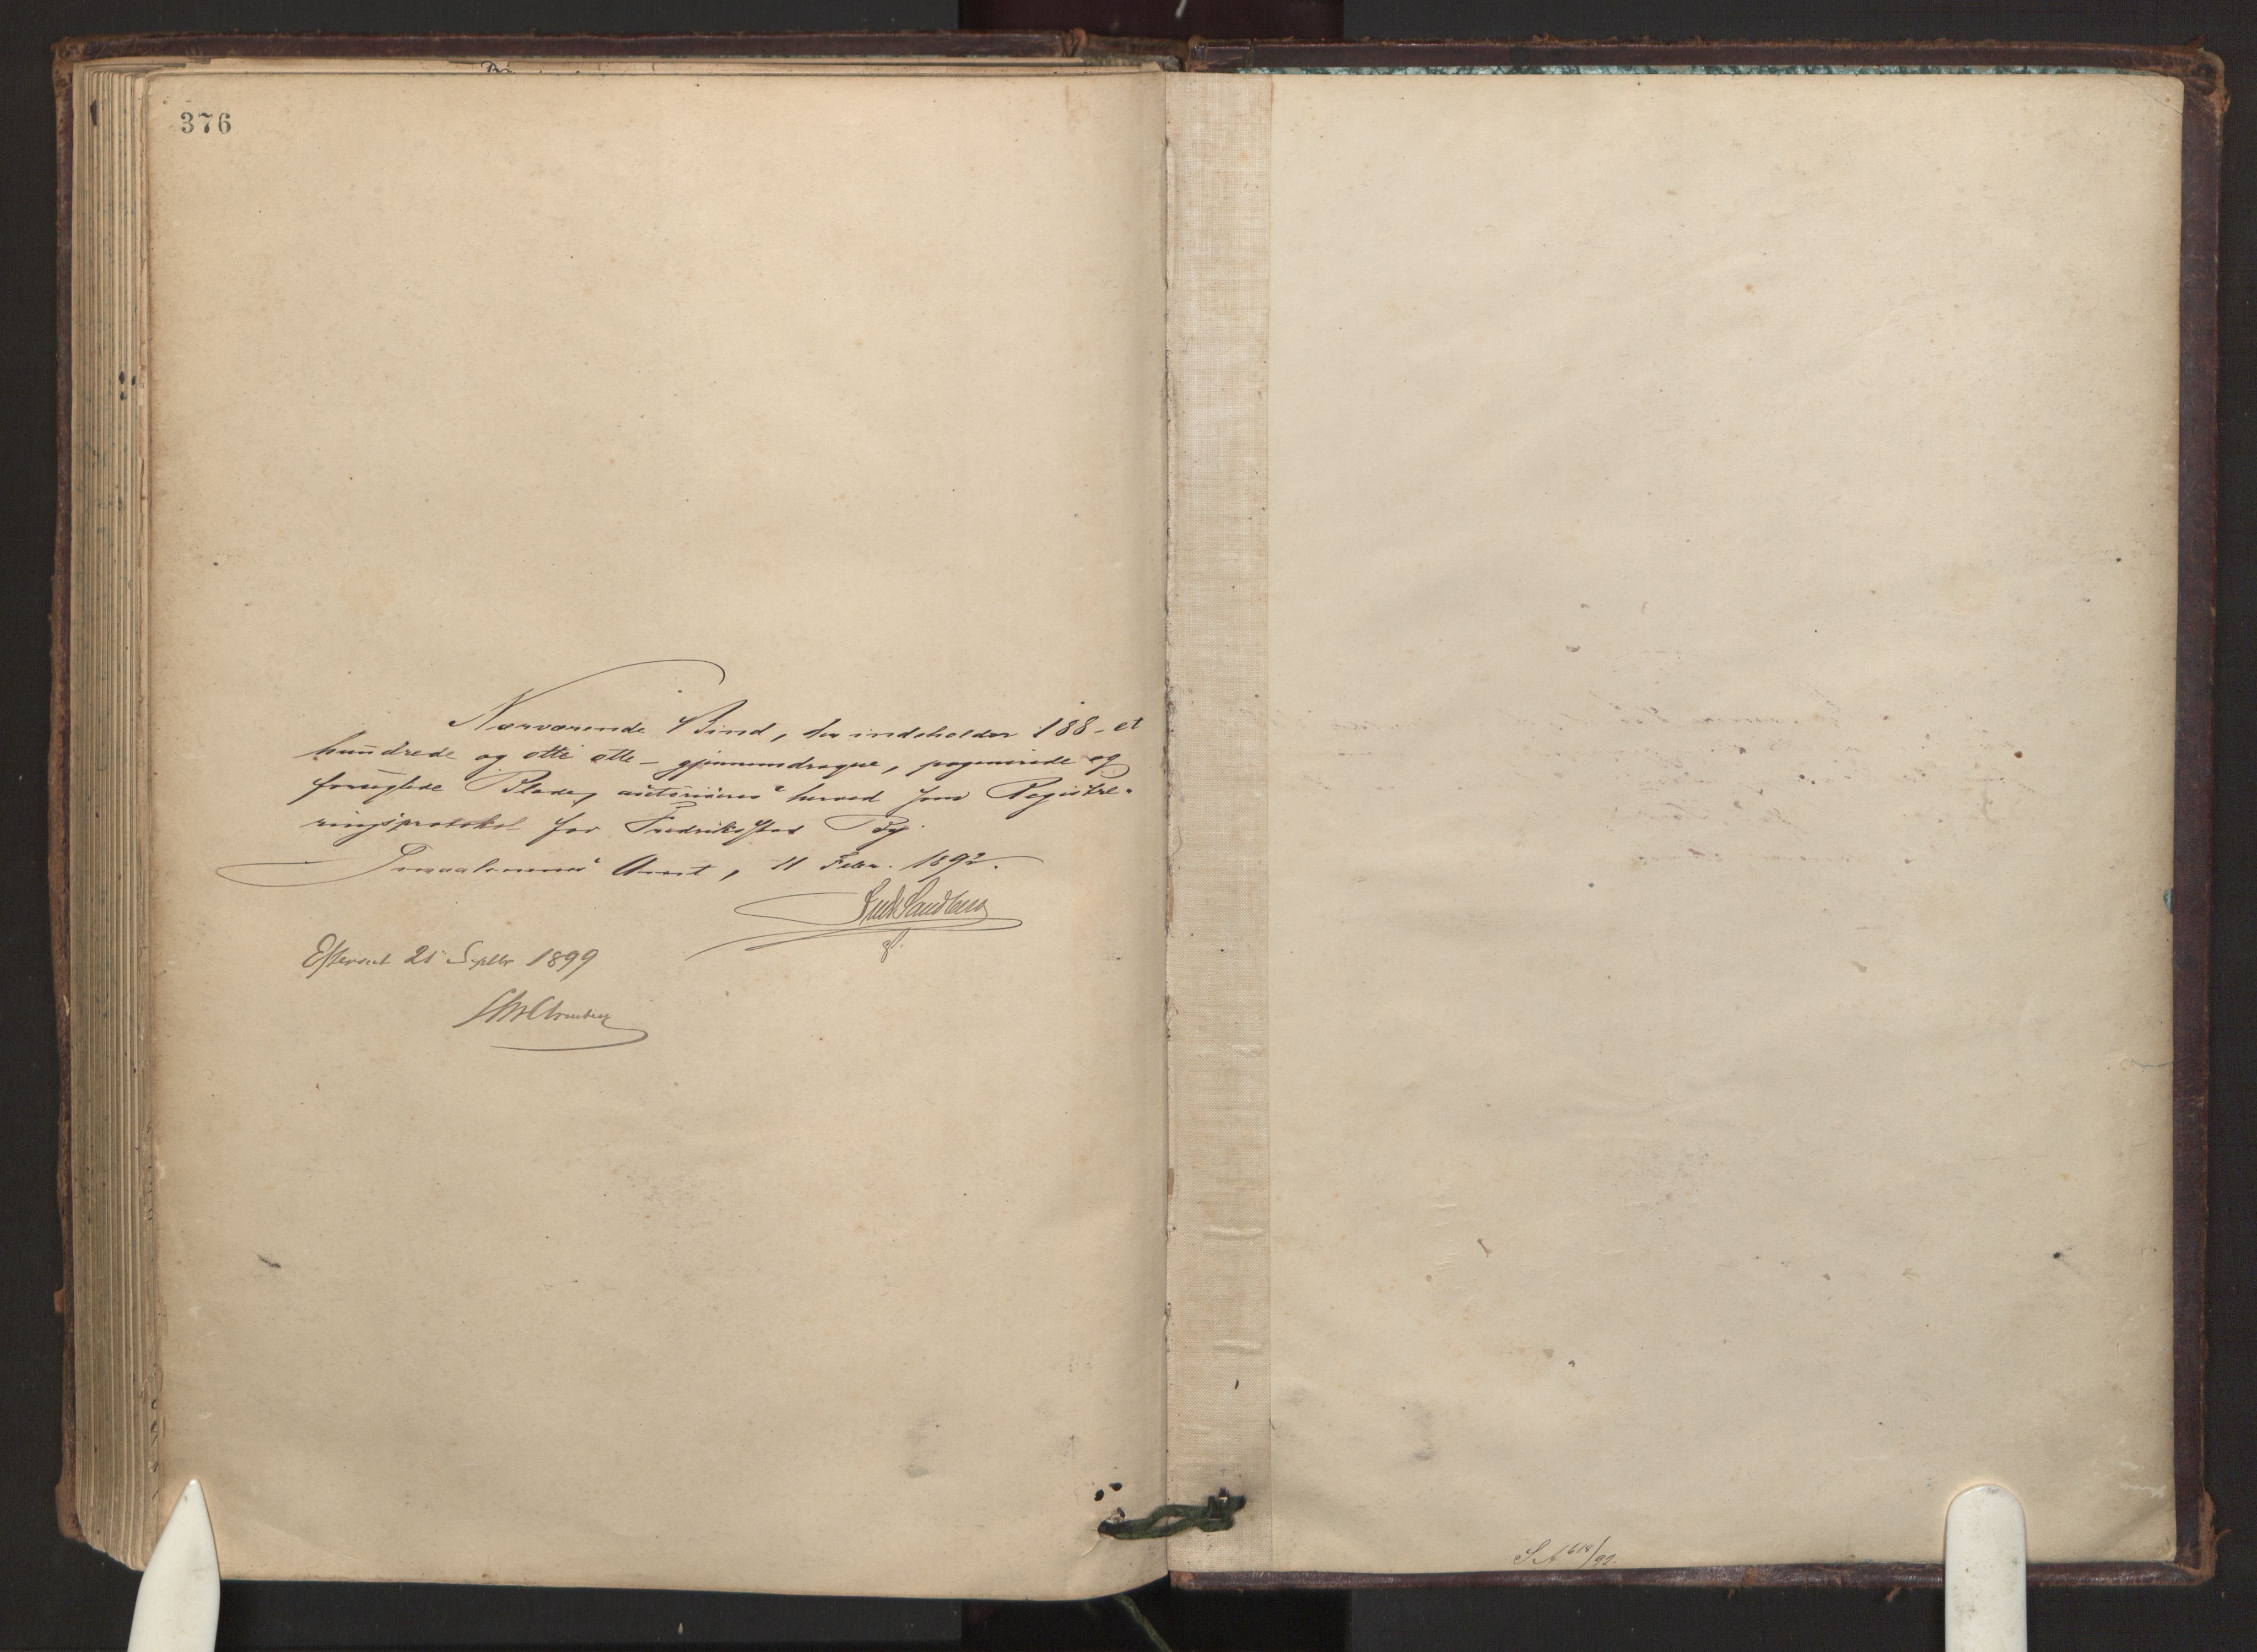 376
Nærværende Bind, der indeholder 188 - et
hundrede og otti otte - gjennemdragne, paginerede og
forseglede Blade, autoriseres herved som Registre-
ringsprotokol for Fredriksstad By.
Smaalenenes Amt, 11 Febr. 1892.
Sandberg
gſt.
Efterseet 25 Septbr 1899
S A 618/92.